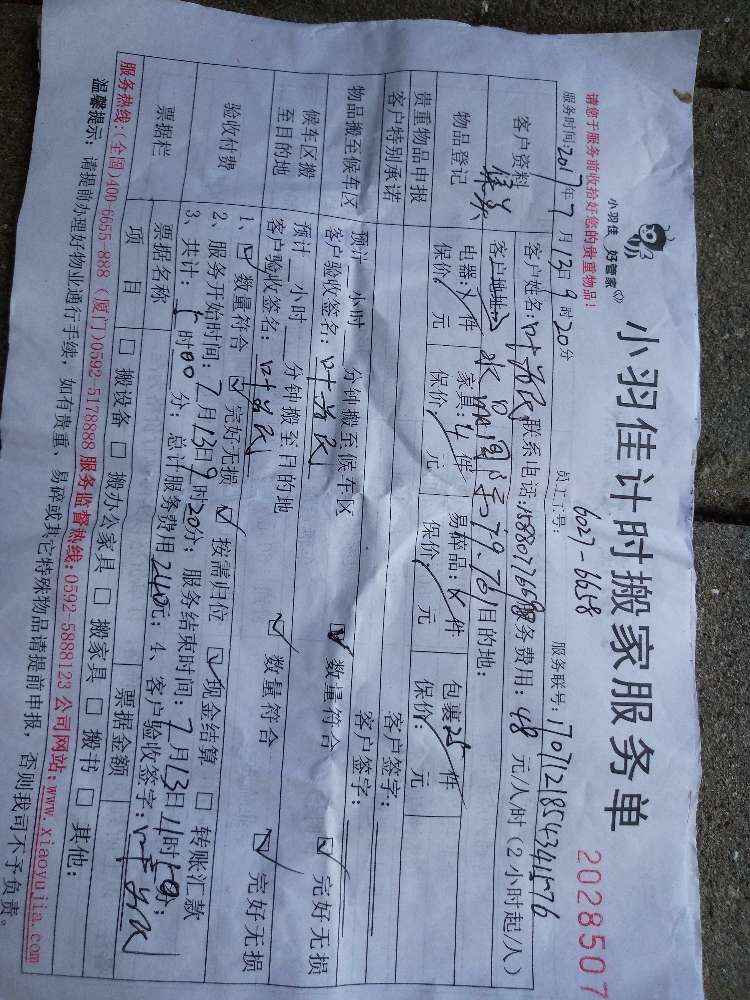 小羽佳 好管家
小羽佳计时搬家服务单
2028507
请您于服务前收拾好您的贵重物品！
员工工号： 6027-6658
服务时间 2017年7月13日9时20分 服务联号：
客户资料 客户姓名： 联系电话： 服务费用：48元/人/时（2小时起/人）
客户地址： 目的地：
物品登记 电器： 件 家具：4件 易碎品： 件 包裹25件
保价 元 保价 元 保价 元 保价 元
贵重物品申报 客户签字：
客户特别承诺 客户签字：
物品搬至候车区 预计 小时 分钟搬至候车区 数量符合 完好无损
客户验收签名：叶为民
候车区搬至目的地 预计 小时 分钟搬至目的地 数量符合 完好无损
客户验收签名：叶为民
验收付费 1、 数量符合 完好无损 按需归位 现金结算 转账汇款
2、服务开始时间：7月13日9时20分；服务结束时间：7月13日11时 分；
3、共计： 时00分；总计服务费用240元；4、客户验收签字：叶为民
票据栏 票据名称 票据金额
项目 搬设备 搬办公家具 搬家具 搬书 其他：
服务热线：（全国）400-6655-888（厦门）0592-5178888 服务监督热线：0592-5888123 公司网站：www.xiaoyujia.com
温馨提示：请提前办理好物业通行手续，如有贵重、易碎或其它特殊物品请提前申报，否则我司不予负责。